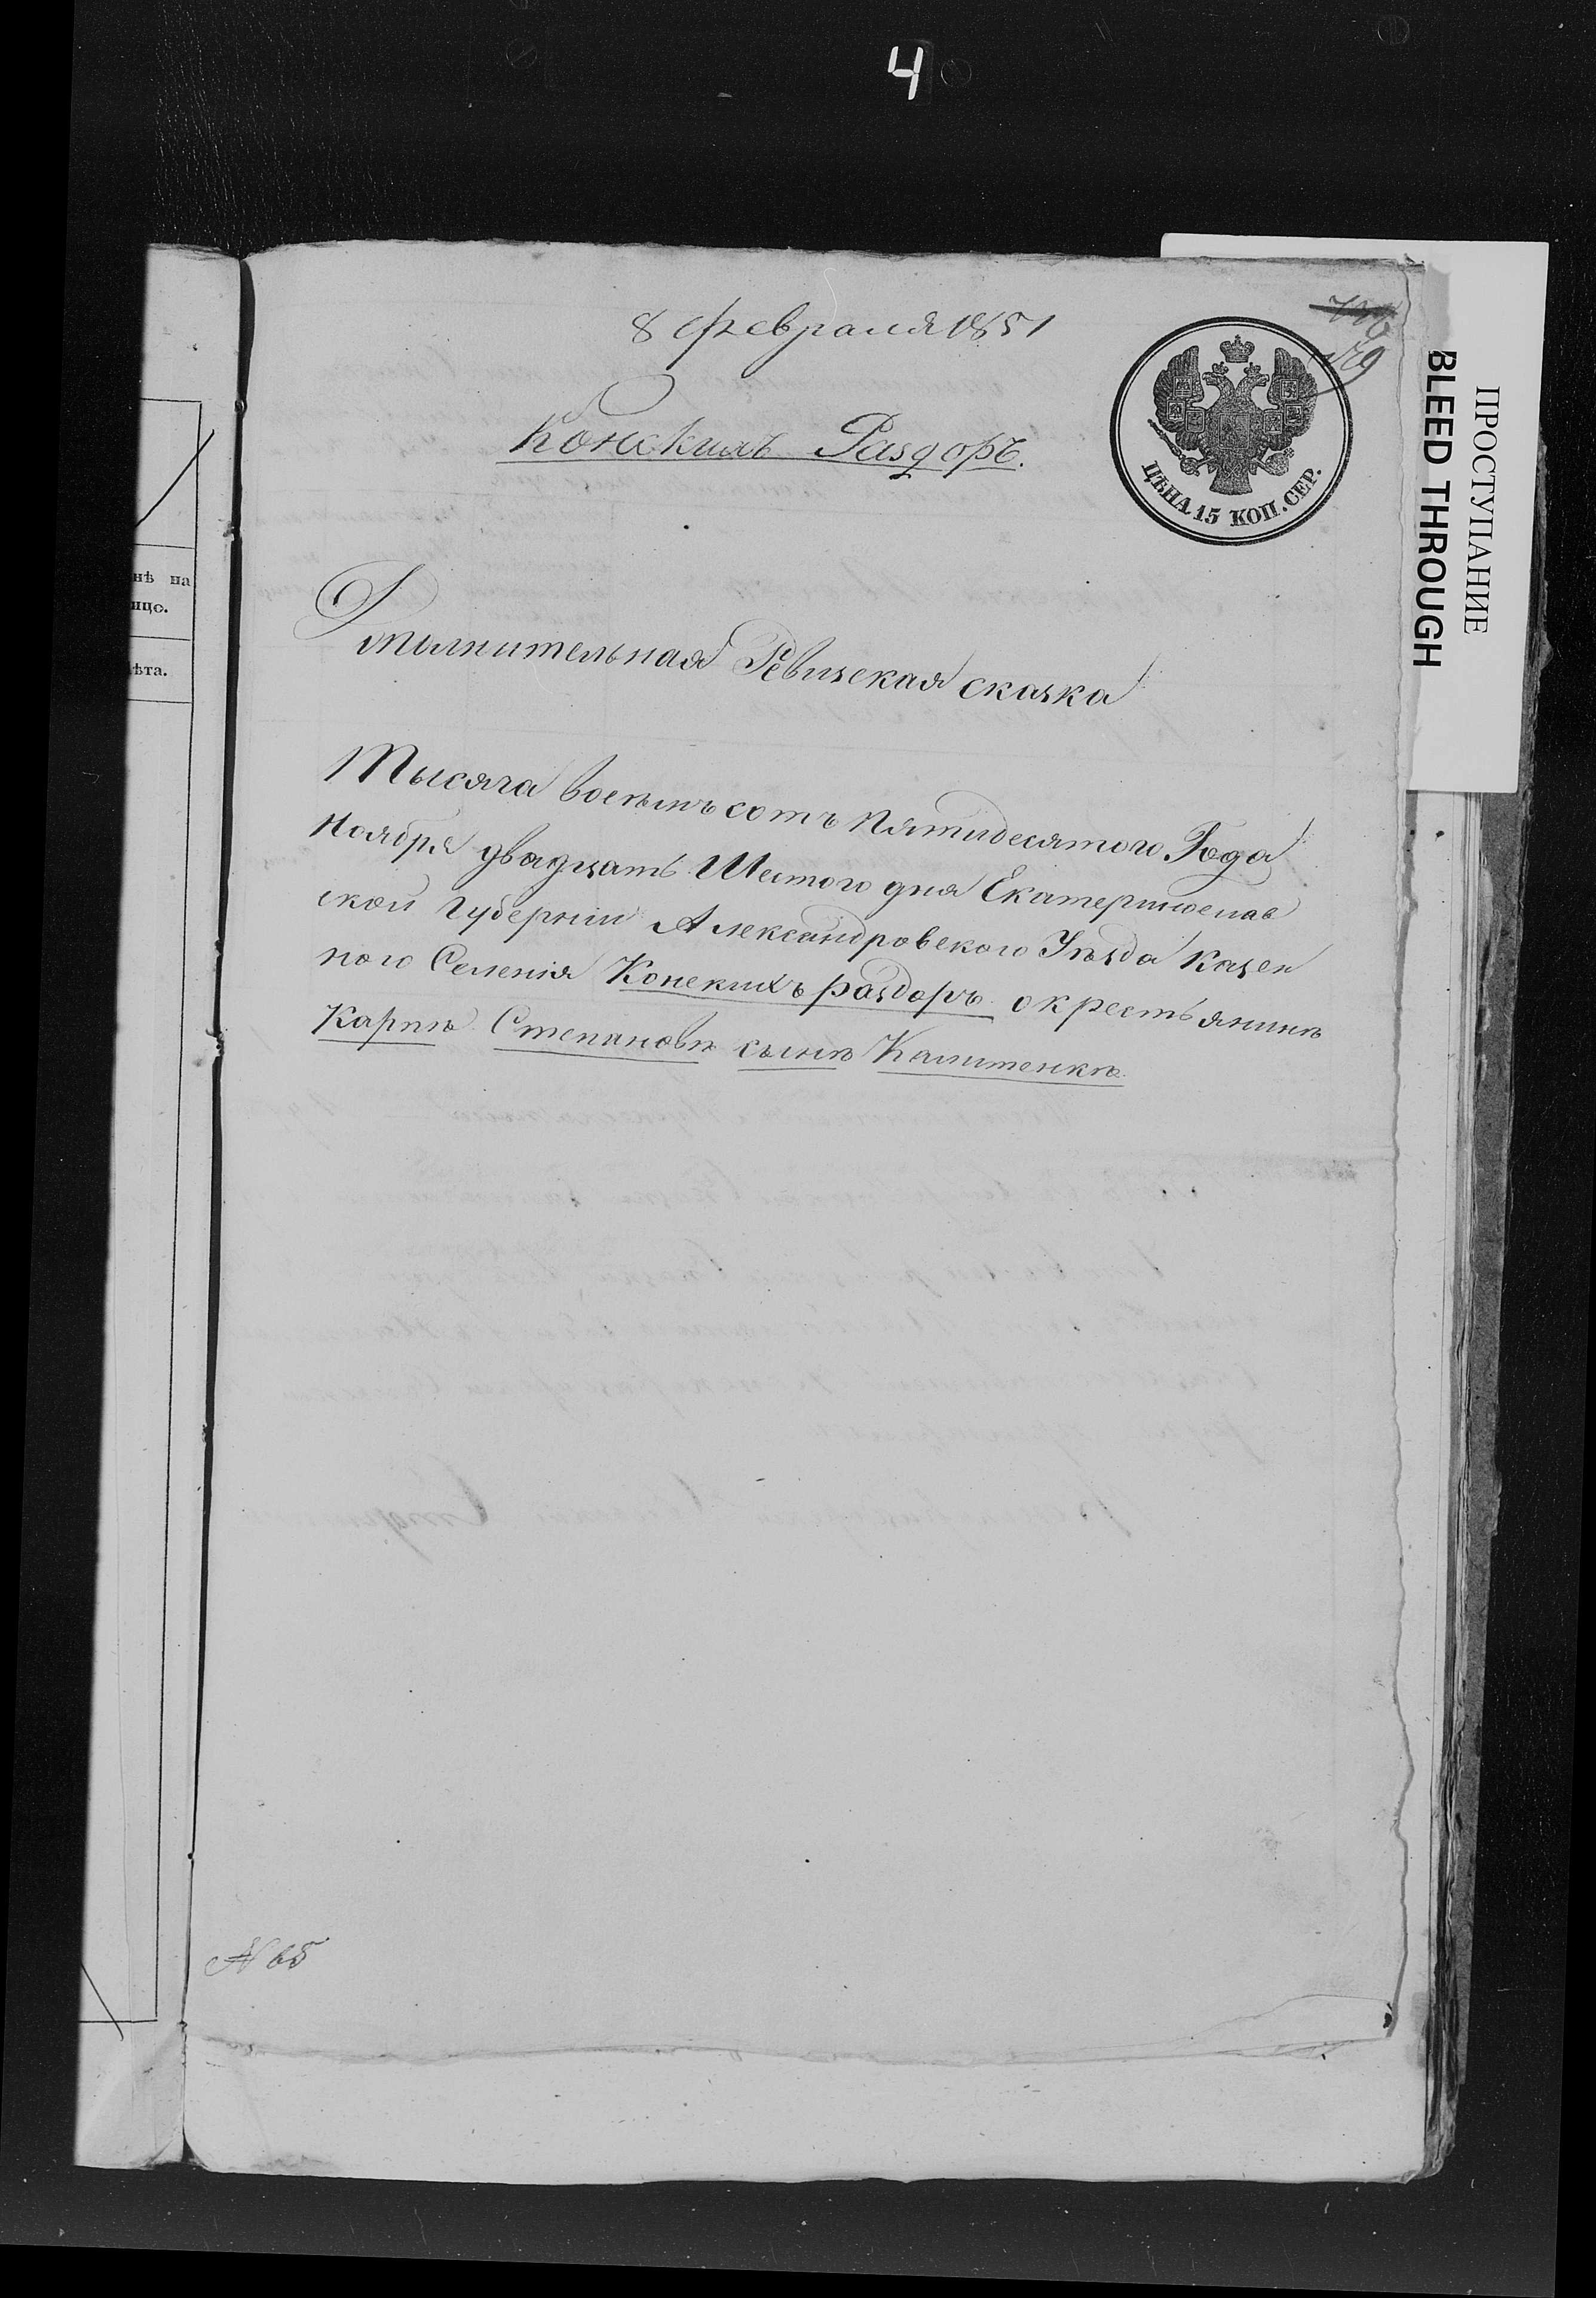 4
8 февраля 1851
Конскихъ Раздоръ.
ЦѢНА 15 КОП. СЕР.
129
ПРОСТУПАНИЕ
BLEED THROUGH
нѣ на
лицо.
ѣта.
Дополнительная Ревизская сказка
Тысяча восемъ сотъ пятидесятого Года
Ноября двадцать Шестого дня Екатеринослав
ской Губерніи Александровского Уѣзда Казен
ного Селенія Конскихъ раздоръ о крестьянинѣ
Карпѣ Степановѣ сынѣ Калитенкѣ.
№ 65